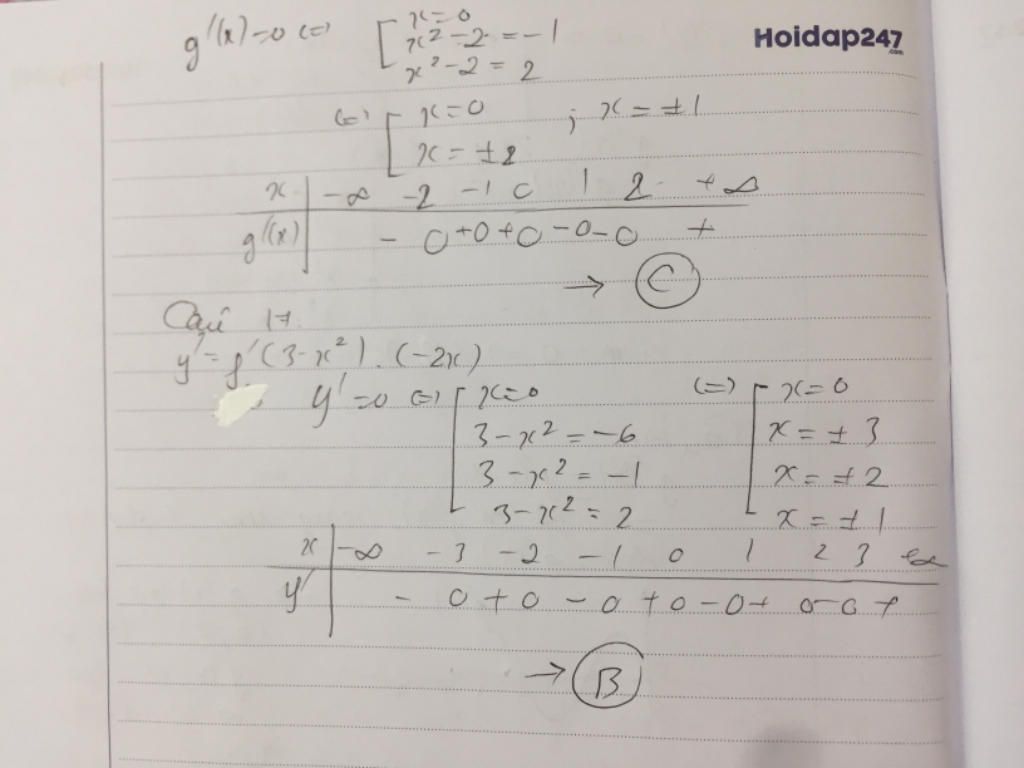 g'(x)=0 <=> [ x=0
x²-2=-1
x²-2=2
Hoidap247.com
(=) [ x=0 ; x=±1
x=±2
x | -∞ -2 -1 0 1 2 +∞
g'(x) | - 0 + 0 + 0 - 0 - 0 +
→ C
Câu 17.
y'=f'(3-x²).(-2x)
y'=0 (=) [ x=0 (=) [ x=0
3-x²=-6 x=±3
3-x²=-1 x=±2
3-x²=2 x=±1
x | -∞ -3 -2 -1 0 1 2 3
y' | - 0 + 0 - 0 + 0 - 0 + 0 - 0 +
→ B